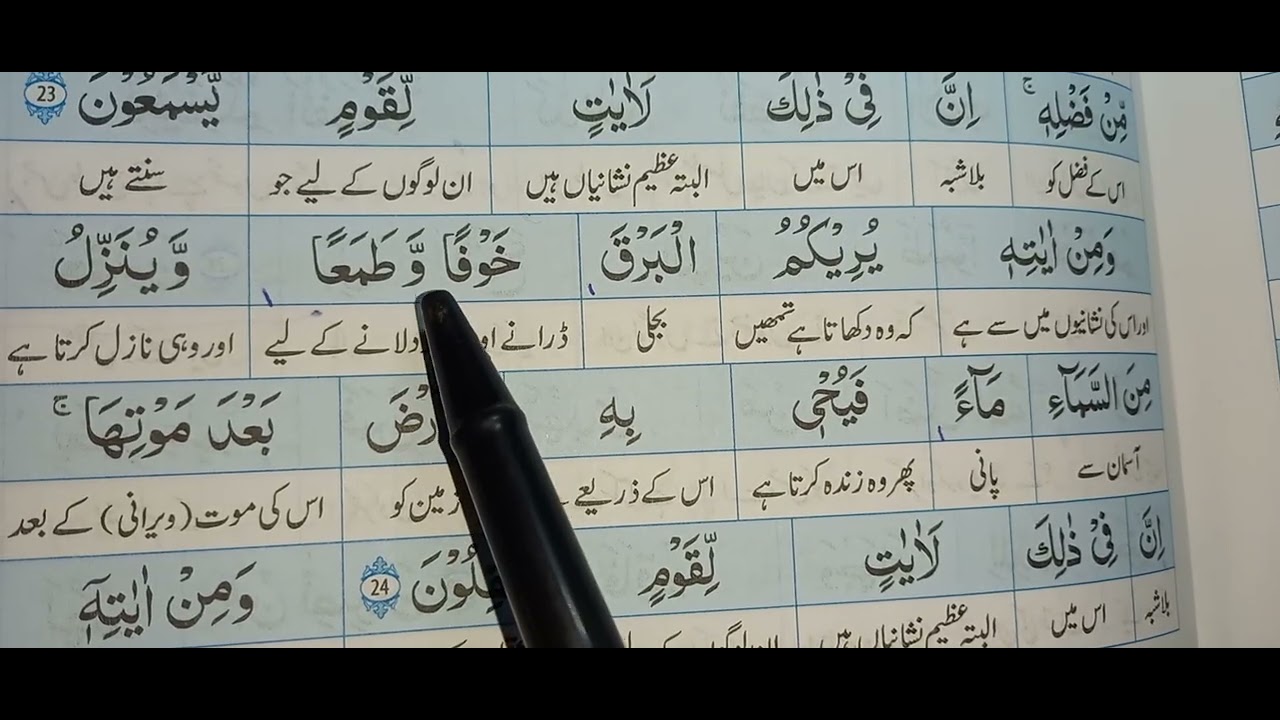 مِّنْ فَضْلِهٖ ۚ اِنَّ فِيْ ذٰلِكَ لَاٰيٰتٍ لِّقَوْمٍ يَّسْمَعُوْنَ 23
اس کے فضل کو بلاشبہ اس میں البتہ عظیم نشانیاں ہیں ان لوگوں کے لیے جو سنتے ہیں
وَمِنْ اٰيٰتِهٖ يُرِيْكُمُ الْبَرْقَ خَوْفًا وَّ طَمَعًا وَّ يُنَزِّلُ
اور اس کی نشانیوں میں سے ہے کہ وہ دکھاتا ہے تمھیں بجلی ڈرانے دلانے کے لیے اور وہی نازل کرتا ہے
مِنَ السَّمَآءِ مَآءً فَيُحْيٖ بِهِ بَعْدَ مَوْتِهَا ۚ
آسمان سے پانی پھر وہ زندہ کرتا ہے اس کے ذریعے زمین کو اس کی موت (ویرانی) کے بعد
اِنَّ فِيْ ذٰلِكَ لَاٰيٰتٍ لِّقَوْمٍ 24 وَمِنْ اٰيٰتِهٖٓ
بلاشبہ اس میں البتہ عظیم نشانیاں ہیں